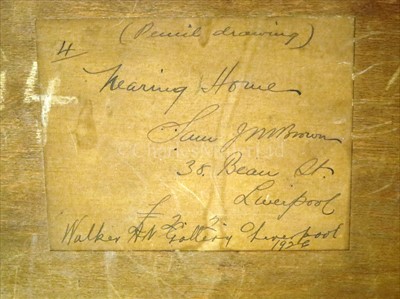 (Pencil drawing)
4
Nearing Home
Sam J M Brown
38. Bean St.
Liverpool
£ 2. 2.
Walker Art Gallery Liverpool
1926